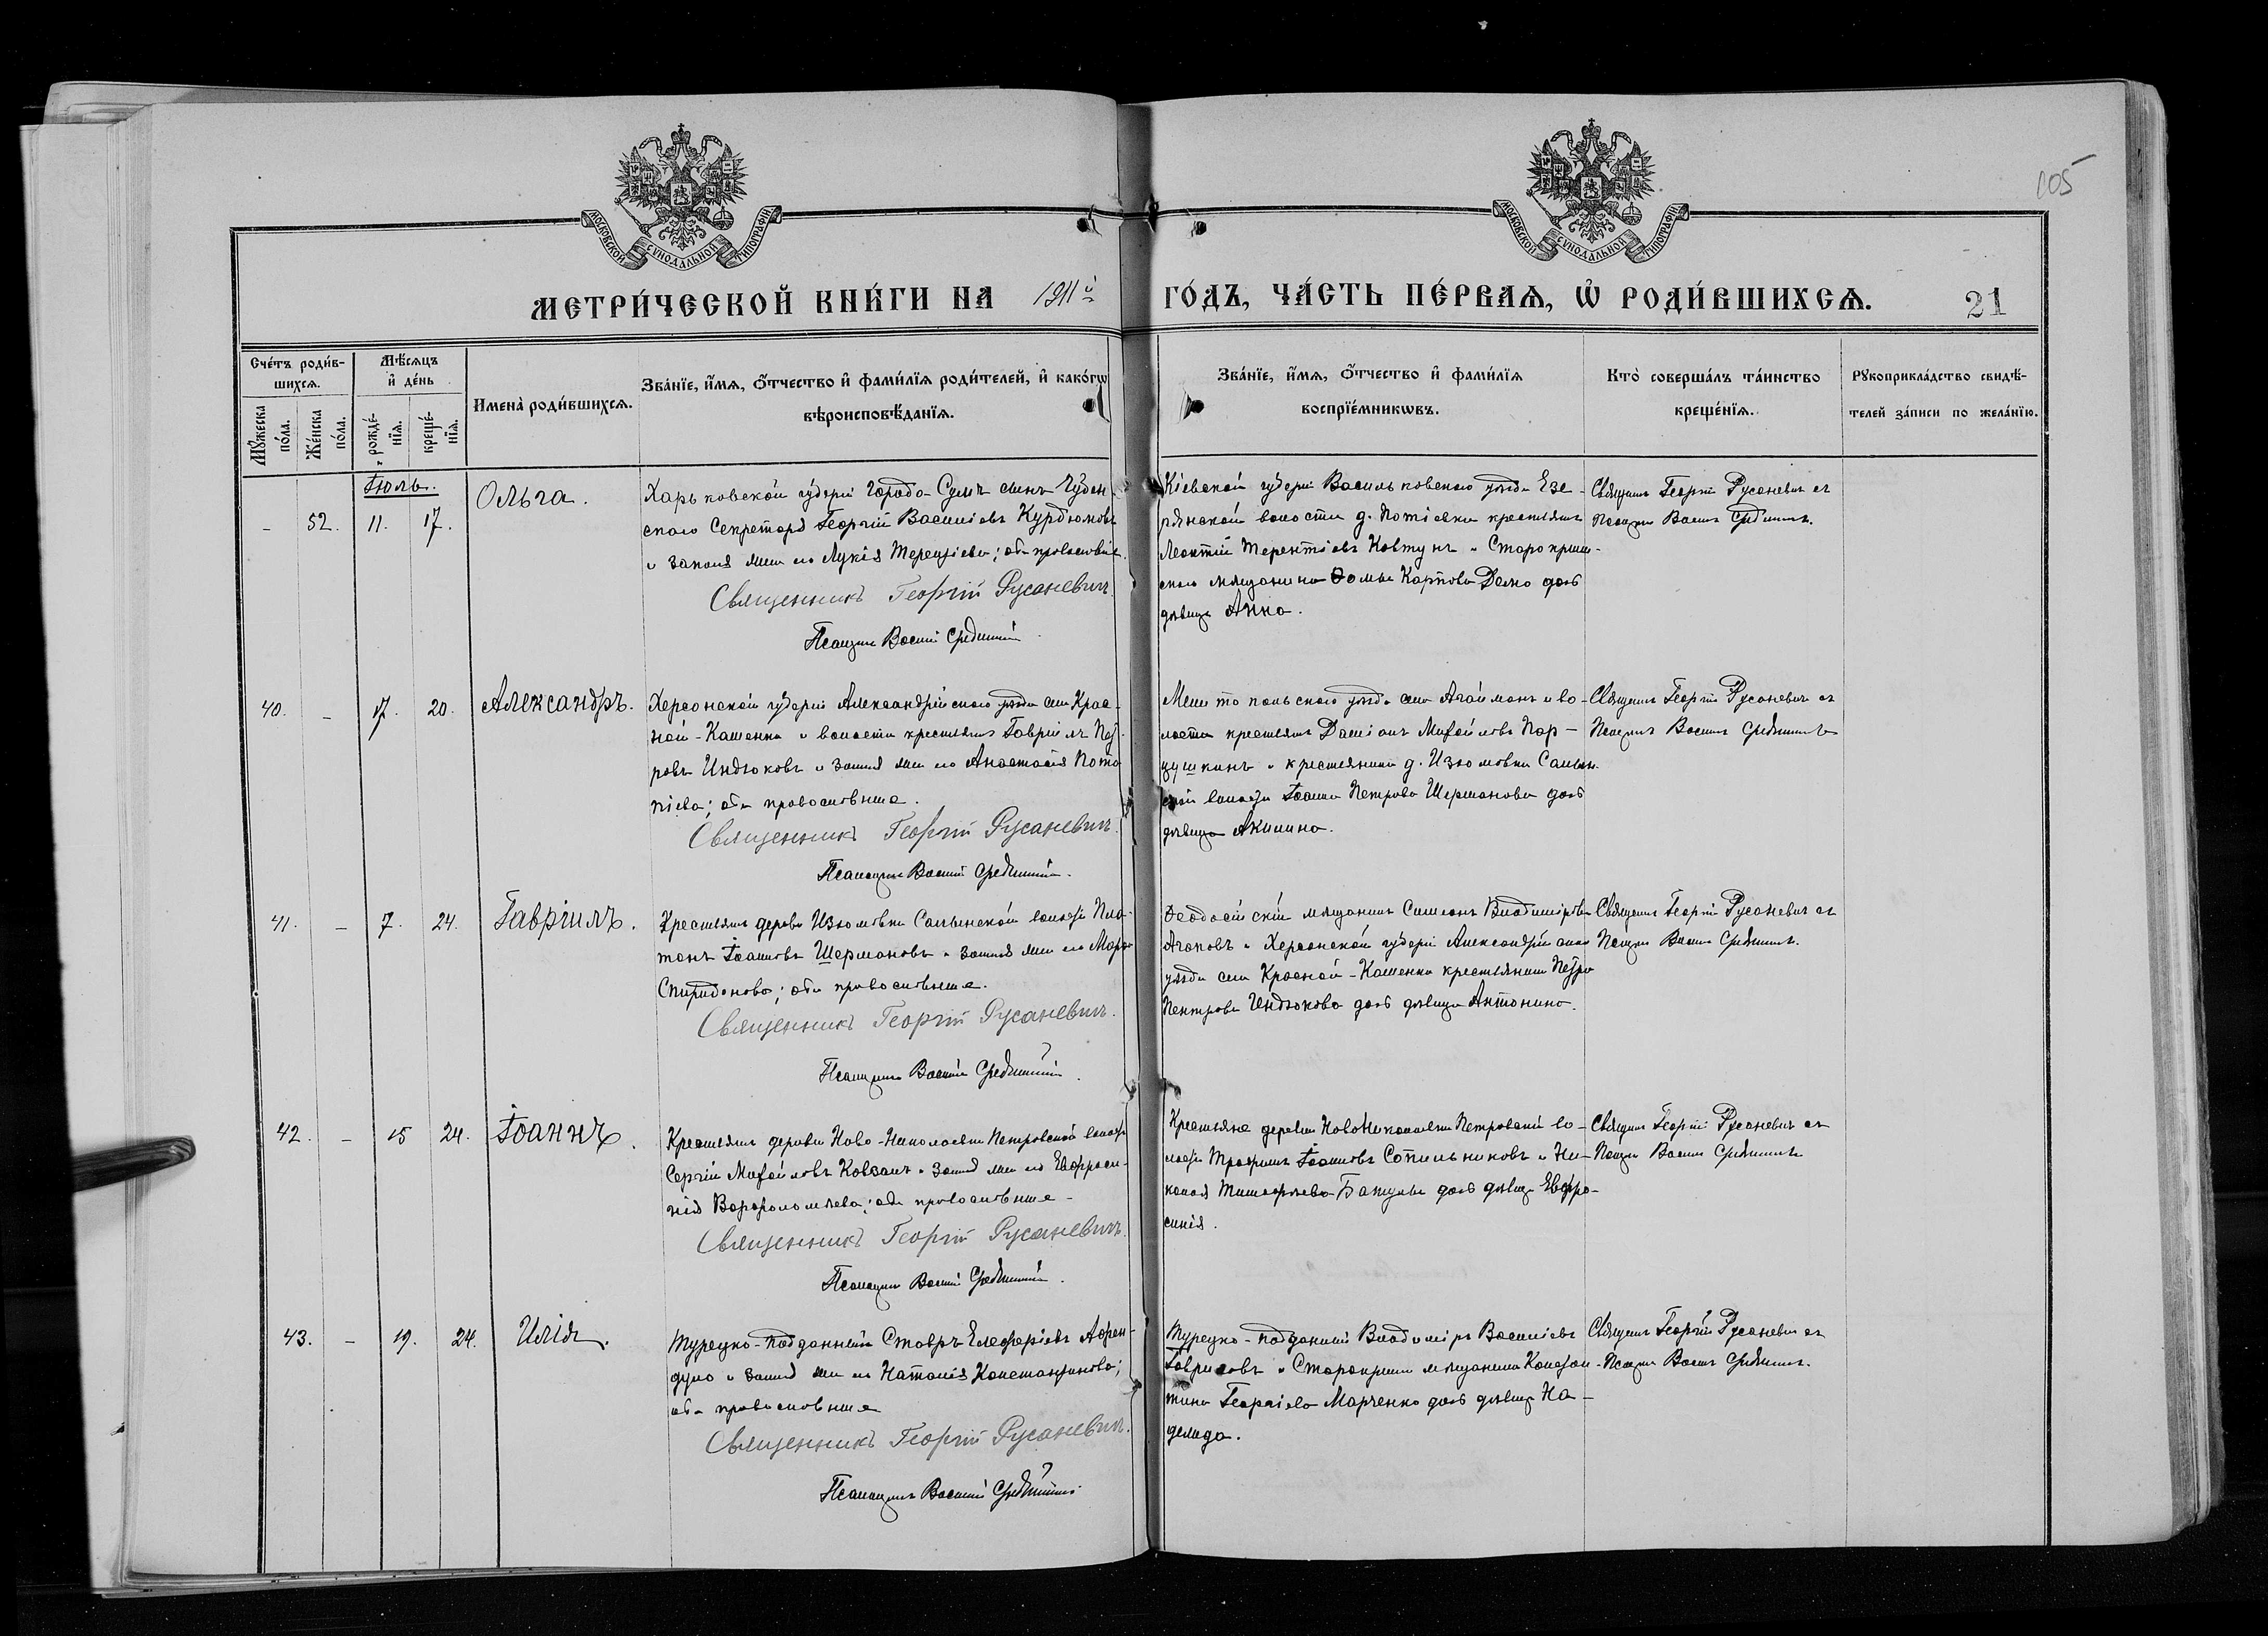 105
МОСКОВСКОЙ СѴНОДАЛЬНОЙ ТИПОГРАФІИ
МОСКОВСКОЙ СѴНОДАЛЬНОЙ ТИПОГРАФІИ
МЕТРИ́ЧЕСКОЙ КНИ́ГИ НА 1911й ГО́ДЪ, ЧА́СТЬ ПЕ́РВАѦ, Ѡ҆ РОДИ́ВШИХСѦ. 21
Сче́тъ роди́в-
шихсѧ.
Мꙋ́жеска по́ла.
Же́нска по́ла.
Мѣ́сѧцъ
и҆ де́нь
рожде́-
нїѧ.
креще́-
нїѧ.
Имена̀ роди́вшихсѧ.
Зва́нїе, и҆́мѧ, ѻ҆́тчество и҆ фами́лїѧ роди́телей, и҆ како́гѡ
вѣроисповѣ́данїѧ.
Зва́нїе, и҆́мѧ, ѻ҆́тчество и҆ фами́лїѧ
воспрїе́мникѡвъ.
Кто̀ соверша́лъ та́инство
креще́нїѧ.
Рꙋкоприкла́дство свидѣ́-
телей за́писи по жела́нїю.
Іюль.
- 52. 11. 17. Ольга.
Харьковской губерніи города Сумъ сынъ Губерн
скаго Секретаря Георгій Василіевъ Курдюмовъ
и законная жена его Лукія Терентіева; оба православные.
Священникъ Георгій Русаневичъ.
Псаломщикъ Василій
Кіевской губерніи Васильковскаго уѣзда Езе-
рянской волости д. Потіевки крестьянинъ
Леонтій Терентіевъ Ковтунъ и Старокрым-
скаго мѣщанина Ѳомы Карпова дочь
дѣвица Анна.
Священникъ Георгій Русаневичъ съ
Псаломщикомъ Василіемъ
40. - 17. 20. Александръ.
Херсонской губерніи Александрійскаго уѣзда села Крас-
ной-Каменки и волости крестьянинъ Гавріилъ Пет-
ровъ Индюковъ и законная жена его Анастасія Пота
піева; оба православные.
Священникъ Георгій Русаневичъ.
Псаломщикъ Василій
Мелитопольскаго уѣзда села Агайманъ и во-
лости крестьянинъ Даміанъ Михайловъ
и крестьянина д. Изюмовки Салын-
ской волости Іоанна Петрова Шерманова дочь
дѣвица Акилина.
Священникъ Георгій Русаневичъ съ
Псаломщикомъ Василіемъ
41. - 7. 24. Гавріилъ.
Крестьянинъ деревни Изюмовки Салынской волости Пла-
тонъ Іоанновъ Шермановъ и законная жена его Марѳа
Спиридонова; оба православные.
Священникъ Георгій Русаневичъ.
Псаломщикъ Василій
Ѳеодосійскій мѣщанинъ Симеонъ Владиміровъ
Агаковъ и Херсонской губерніи Александрійскаго
уѣзда села Красной-Каменки крестьянина Петра
Петрова Индюкова дочь дѣвица Антонина.
Священникъ Георгій Русаневичъ съ
Псаломщикомъ Василіемъ
42. - 15 24. Іоаннъ.
Крестьянинъ деревни Ново-Николаевки Петровской волости
Сергій Михайловъ Ковзанъ и законная жена его Евфроси-
нія Варфоломѣева; оба православные.
Священникъ Георгій Русаневичъ.
Псаломщикъ Василій
Крестьяне деревни Новониколаевки Петровской во-
лости Трофимъ Іоанновъ Сопильниковъ и Ни-
колая Тимофѣева дочь дѣвица Евфро-
синія.
Священникъ Георгій Русаневичъ съ
Псаломщикомъ Василіемъ
43. - 19. 24. Илія.
Турецко-подданный Ставръ Елефѳеріевъ Афен-
дуло и законная жена его Наталія Константинова;
оба православные
Священникъ Георгій Русаневичъ.
Псаломщикъ Василій
Турецко-подданный Владиміръ Василіевъ
Гавриловъ и Старокрымскаго мѣщанина Констан-
тина Георгіева Марченко дочь дѣвица На-
дежда.
Священникъ Георгій Русаневичъ съ
Псаломщикомъ Василіемъ